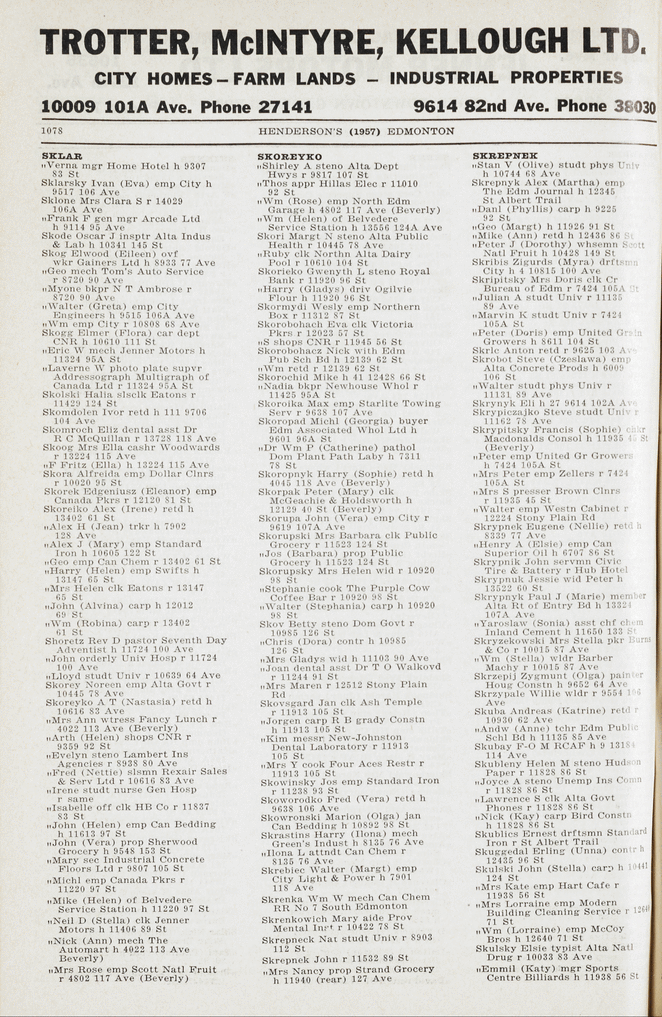 TROTTER, McINTYRE, KELLOUGH LTD.
CITY HOMES – FARM LANDS – INDUSTRIAL PROPERTIES
10009 101A Ave. Phone 27141 9614 82nd Ave. Phone 38030
1078 HENDERSON'S (1957) EDMONTON
SKLAR
"Verna mgr Home Hotel h 9307
83 St
Sklarsky Ivan (Eva) emp City h
9517 106 Ave
Sklone Mrs Clara S r 14029
106A Ave
"Frank F gen mgr Arcade Ltd
h 9114 95 Ave
Skode Oscar J insptr Alta Indus
& Lab h 10341 145 St
Skog Elwood (Eileen) ovf
wkr Gainers Ltd h 8933 77 Ave
"Geo mech Tom's Auto Service
r 8720 90 Ave
"Myone bkpr N T Ambrose r
8720 90 Ave
"Walter (Greta) emp City
Engineers h 9515 106A Ave
"Wm emp City r 10808 68 Ave
Skogg Elmer (Flora) car dept
CNR h 10610 111 St
"Eric W mech Jenner Motors h
11324 95A St
"Laverne W photo plate supvr
Addressograph Multigraph of
Canada Ltd r 11324 95A St
Skolski Halia slsclk Eatons r
11429 124 St
Skomdolen Ivor retd h 111 9706
104 Ave
Skomroch Eliz dental asst Dr
R C McQuillan r 13728 118 Ave
Skoog Mrs Ella cashr Woodwards
r 13224 115 Ave
"F Fritz (Ella) h 13224 115 Ave
Skora Alfreida emp Dollar Clnrs
r 10020 95 St
Skorek Edgeniusz (Eleanor) emp
Canada Pkrs r 12120 81 St
Skoreiko Alex (Irene) retd h
13402 61 St
"Alex H (Jean) trkr h 7902
128 Ave
"Alex J (Mary) emp Standard
Iron h 10605 122 St
"Geo emp Can Chem r 13402 61 St
"Harry (Helen) emp Swifts h
13147 65 St
"Mrs Helen clk Eatons r 13147
65 St
"John (Alvina) carp h 12012
69 St
"Wm (Robina) carp r 13402
61 St
Shoretz Rev D pastor Seventh Day
Adventist h 11724 100 Ave
"John orderly Univ Hosp r 11724
100 Ave
"Lloyd studt Univ r 10639 64 Ave
Skorey Noreen emp Alta Govt r
10445 78 Ave
Skoreyko A T (Nastasia) retd h
10616 83 Ave
"Mrs Ann wtress Fancy Lunch r
4022 113 Ave (Beverly)
"Arth (Helen) shops CNR r
9359 92 St
"Evelyn steno Lambert Ins
Agencies r 8938 80 Ave
"Fred (Nettie) slsmn Rexair Sales
& Serv Ltd r 10616 83 Ave
"Irene studt nurse Gen Hosp
r same
"Isabelle off clk HB Co r 11837
83 St
"John (Helen) emp Can Bedding
h 11613 97 St
"John (Vera) prop Sherwood
Grocery h 9548 153 St
"Mary sec Industrial Concrete
Floors Ltd r 9807 105 St
"Michl emp Canada Pkrs r
11220 97 St
"Mike (Helen) of Belvedere
Service Station h 11220 97 St
"Neil D (Stella) clk Jenner
Motors h 11406 89 St
"Nick (Ann) mech The
Automart h 4022 113 Ave
Beverly)
"Mrs Rose emp Scott Natl Fruit
r 4802 117 Ave (Beverly)
SKOREYKO
"Shirley A steno Alta Dept
Hwys r 9817 107 St
"Thos appr Hillas Elec r 11010
92 St
"Wm (Rose) emp North Edm
Garage h 4802 117 Ave (Beverly)
"Wm (Helen) of Belvedere
Service Station h 13556 124A Ave
Skori Margt N steno Alta Public
Health r 10445 78 Ave
"Ruby clk Northn Alta Dairy
Pool r 10610 104 St
Skorieko Gwenyth L steno Royal
Bank r 11920 96 St
"Harry (Gladys) driv Ogilvie
Flour h 11920 96 St
Skormydi Wesly emp Northern
Box r 11312 87 St
Skorobohach Eva clk Victoria
Pkrs r 12023 57 St
"S shops CNR r 11945 56 St
Skorobohacz Nick with Edm
Pub Sch Bd h 12139 62 St
"Wm retd r 12139 62 St
Skorochid Mike h 41 12428 66 St
"Nadia bkpr Newhouse Whol r
11425 95A St
Skoroika Max emp Starlite Towing
Serv r 9638 107 Ave
Skoropad Michl (Georgia) buyer
Edm Associated Whol Ltd h
9601 96A St
"Dr Wm P (Catherine) pathol
Dom Plant Path Laby h 7311
78 St
Skoropnyk Harry (Sophie) retd h
4045 118 Ave (Beverly)
Skorpak Peter (Mary) clk
McGeachie & Holdsworth h
12129 40 St (Beverly)
Skorupa John (Vera) emp City r
9619 107A Ave
Skorupski Mrs Barbara clk Public
Grocery r 11523 124 St
"Jos (Barbara) prop Public
Grocery h 11523 124 St
Skorupsky Mrs Helen wid r 10920
98 St
"Stephanie cook The Purple Cow
Coffee Bar r 10920 98 St
"Walter (Stephania) carp h 10920
98 St
Skov Betty steno Dom Govt r
10985 126 St
"Chris (Dora) contr h 10985
126 St
"Mrs Gladys wid h 11103 90 Ave
"Joan dental asst Dr T O Walkovd
r 11244 91 St
"Mrs Maren r 12512 Stony Plain
Rd
Skovsgard Jan clk Ash Temple
r 11913 105 St
"Jorgen carp R B grady Constn
h 11913 105 St
"Kim messr New-Johnston
Dental Laboratory r 11913
105 St
"Mrs Y cook Four Aces Restr r
11913 105 St
Skowinsky Jos emp Standard Iron
r 11238 93 St
Skoworodko Fred (Vera) retd h
9638 106 Ave
Skowronski Marion (Olga) jan
Can Bedding h 10892 98 St
Skrastins Harry (Ilona) mech
Green's Indust h 8135 76 Ave
"Ilona L attndt Can Chem r
8135 76 Ave
Skrebiec Walter (Margt) emp
City Light & Power h 7901
118 Ave
Skrenka Wm W mech Can Chem
RR No 7 South Edmonton
Skrenkowich Mary aide Prov
Mental Inst r 10422 78 St
Skrepneck Nat studt Univ r 8903
112 St
Skrepnek John r 11532 89 St
"Mrs Nancy prop Strand Grocery
h 11940 (rear) 127 Ave
SKREPNEK
"Stan V (Olive) studt phys Univ
h 10744 68 Ave
Skrepnyk Alex (Martha) emp
The Edm Journal h 12345
St Albert Trail
"Danl (Phyllis) carp h 9225
92 St
"Geo (Margt) h 11926 91 St
"Mike (Ann) retd h 12436 86 St
"Peter J (Dorothy) whsemn Scott
Natl Fruit h 10428 149 St
Skribis Zigurds (Myra) drftsmn
City h 4 10815 100 Ave
Skripitsky Mrs Doris clk Cr
Bureau of Edm r 7424 105A St
"Julian A studt Univ r 11135
89 Ave
"Marvin K studt Univ r 7424
105A St
"Peter (Doris) emp United Grain
Growers h 8611 104 St
Skrlc Anton retd r 9625 103 Ave
Skrobot Steve (Czeslawa) emp
Alta Concrete Prods h 6009
106 St
"Walter studt phys Univ r
11131 89 Ave
Skrynyk Eli h 27 9614 102A Ave
Skrypiczajko Steve studt Univ r
11162 78 Ave
Skrypitsky Francis (Sophie) chkr
Macdonalds Consol h 11935 45 St
(Beverly)
"Peter emp United Gr Growers
h 7424 105A St
"Mrs Peter emp Zellers r 7424
105A St
"Mrs S presser Brown Clnrs
r 11935 45 St
"Walter emp Westn Cabinet r
12224 Stony Plain Rd
Skrypnek Eugene (Nellie) retd h
8339 77 Ave
"Henry A (Elsie) emp Can
Superior Oil h 6707 86 St
Skrypnik John servmn Civic
Tire & Battery r Hub Hotel
Skrypnuk Jessie wid Peter h
13522 60 St
Skrypnyk Paul J (Marie) member
Alta Rt of Entry Bd h 13324
107A Ave
"Yaroslaw (Sonia) asst chf chem
Inland Cement h 11650 133 St
Skryzekowski Mrs Stella pkr Burns
& Co r 10015 87 Ave
"Wm (Stella) wldr Barber
Machy r 10015 87 Ave
Skrzepij Zygmunt (Olga) painter
Hour Constn h 9652 64 Ave
Skrzypale Willie wldr r 9554 106
Ave
Skuba Andreas (Katrine) retd r
10930 62 Ave
"Andw (Anne) tchr Edm Public
Schl Bd h 11135 85 Ave
Skubay F-O M RCAF h 9 13184
114 Ave
Skubleny Helen M steno Hudson
Paper r 11828 86 St
"Joyce A steno Unemp Ins Comn
r 11828 86 St
"Lawrence S clk Alta Govt
Phones r 11828 86 St
"Nick (Kay) carp Bird Constn
h 11828 86 St
Skublics Ernest drftsmn Standard
Iron r St Albert Trail
Skuggedal Erling (Unna) contr h
12435 96 St
Skulski John (Stella) carp h 10441
124 St
"Mrs Kate emp Hart Cafe r
11938 56 St
"Mrs Lorraine emp Modern
Building Cleaning Service r
71 St
"Wm (Lorraine) emp McCoy
Bros h 12640 71 St
Skulsky Elsie typist Alta Natl
Drug r 10033 83 Ave
"Emmil (Katy) mgr Sports
Centre Billiards h 11938 56 St